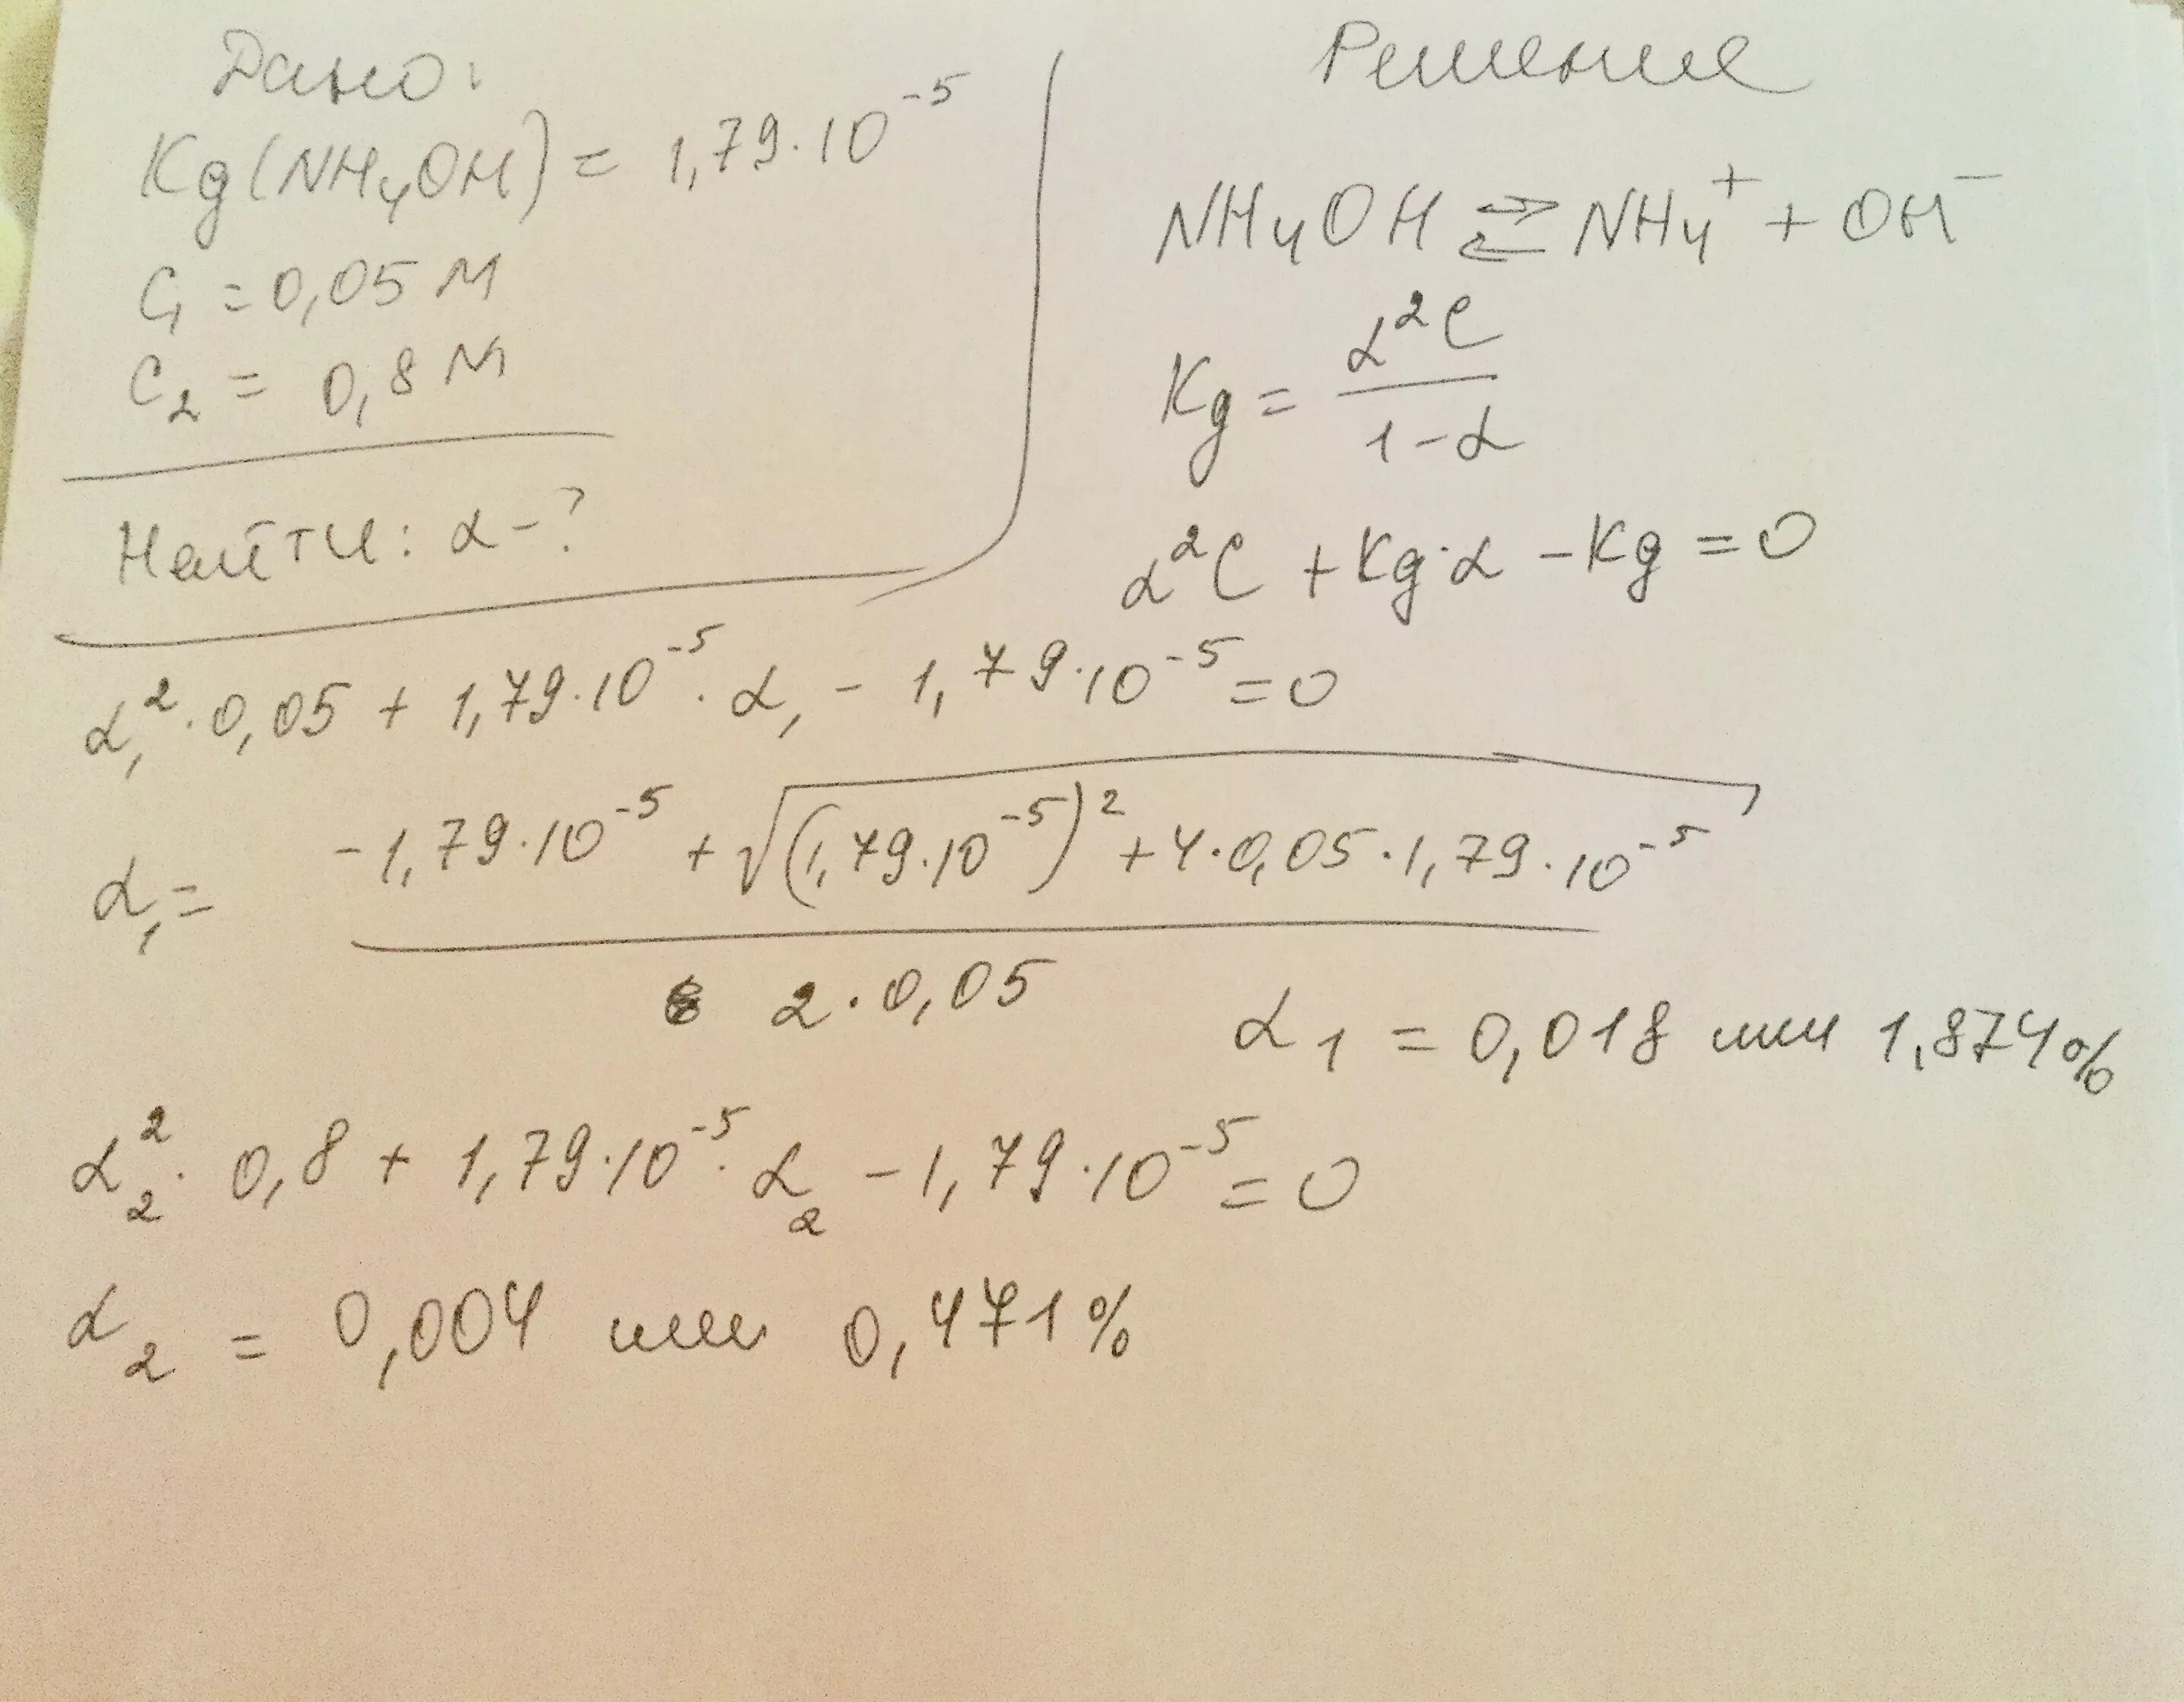 Дано:
Kg(NH₄OH) = 1,79·10⁻⁵
C₁ = 0,05 M
C₂ = 0,8 M
Найти: α - ?
Решение
NH₄OH ⇄ NH₄⁺ + OH⁻
Kg = α²C / 1-α
α²C + Kg·α - Kg = 0
α₁²·0,05 + 1,79·10⁻⁵·α₁ - 1,79·10⁻⁵ = 0
α₁ = -1,79·10⁻⁵ + √(1,79·10⁻⁵)² + 4·0,05·1,79·10⁻⁵ / 2·0,05
α₁ = 0,018 или 1,874%
α₂²·0,8 + 1,79·10⁻⁵·α₂ - 1,79·10⁻⁵ = 0
α₂ = 0,004 или 0,471%